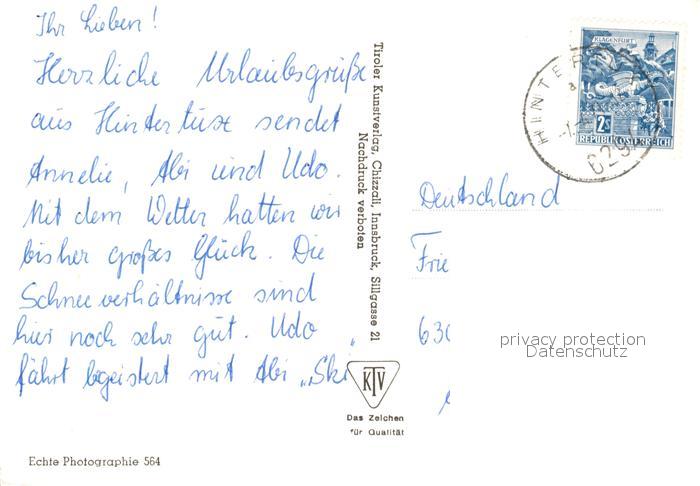 Ihr Lieben!
Herzliche Urlaubsgrüße
aus Hintertux sendet
Annelie, Abi und Udo.
Mit dem Wetter hatten wir
bisher großes Glück. Die
Schneeverhältnisse sind
hier noch sehr gut. Udo
fährt begeistert mit Abi „Ski
Echte Photographie 564
Tiroler Kunstverlag, Chizzali, Innsbruck, Sillgasse 21
Nachdruck verboten
KTV
Das Zeichen
für Qualität
KLAGENFURT
2S
REPUBLIK ÖSTERREICH
HINTERTUX
629
Deutschland
Frie
630
privacy protection
Datenschutz